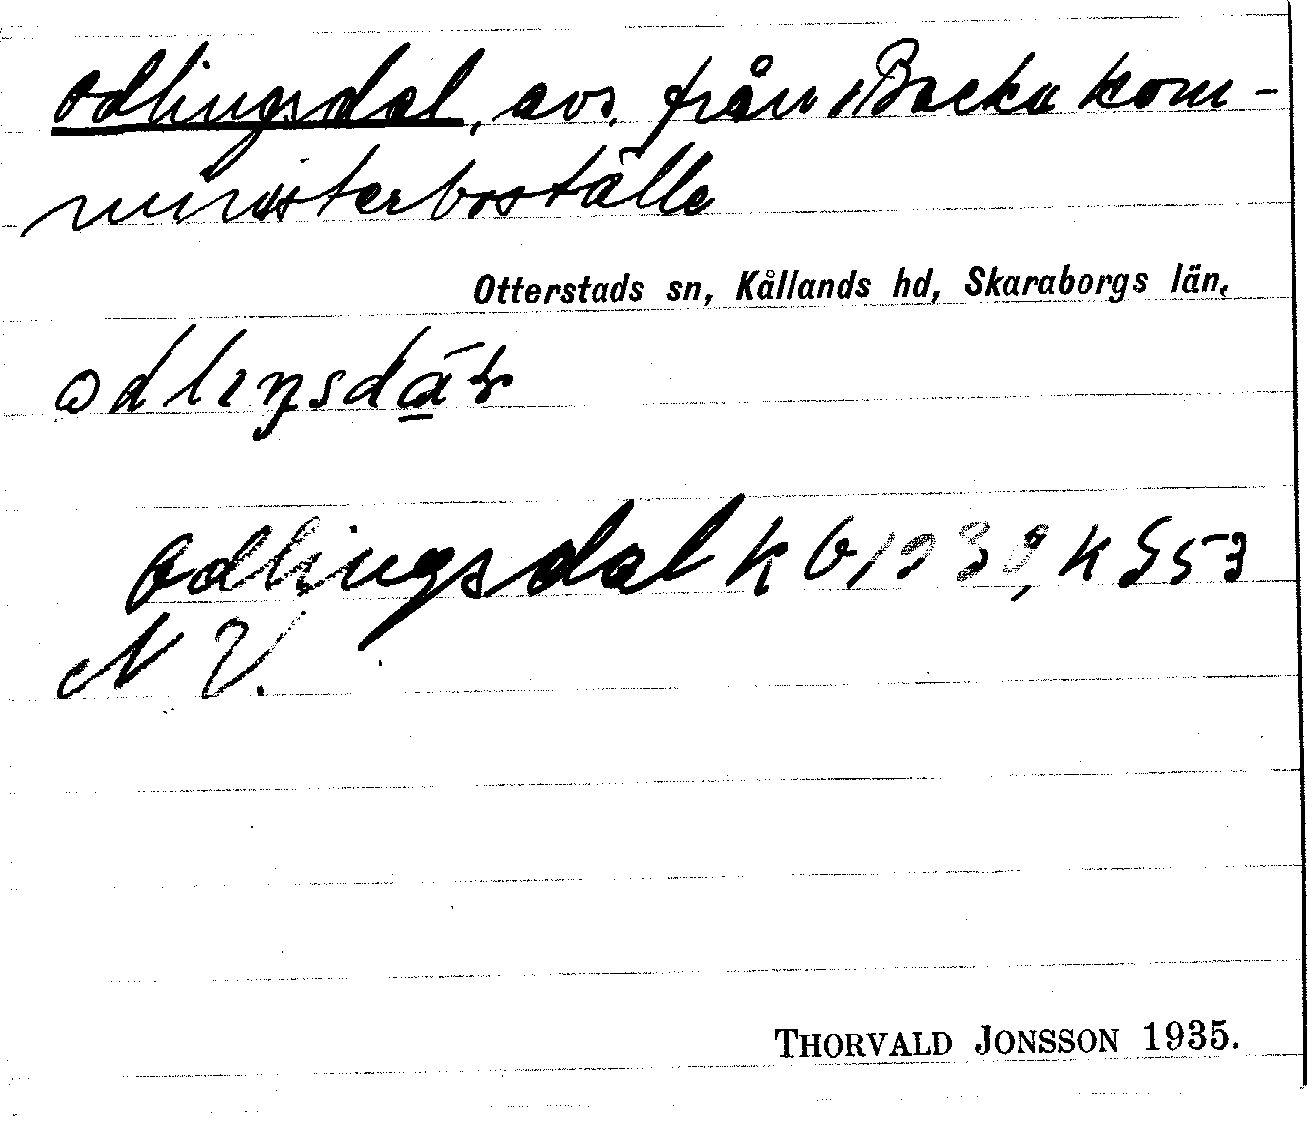 Odlingsdal, avs. från Backa kom-
ministerboställe
Otterstads sn, Kållands hd, Skaraborgs län.
Odlingsdal k b 1939, k
N V.
THORVALD JONSSON 1935.